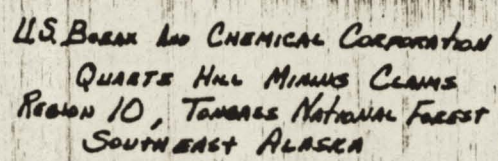 U.S. Borax And Chemical Corporation
Quartz Hill Mining Claims
Region 10, Tongass National Forest
Southeast Alaska